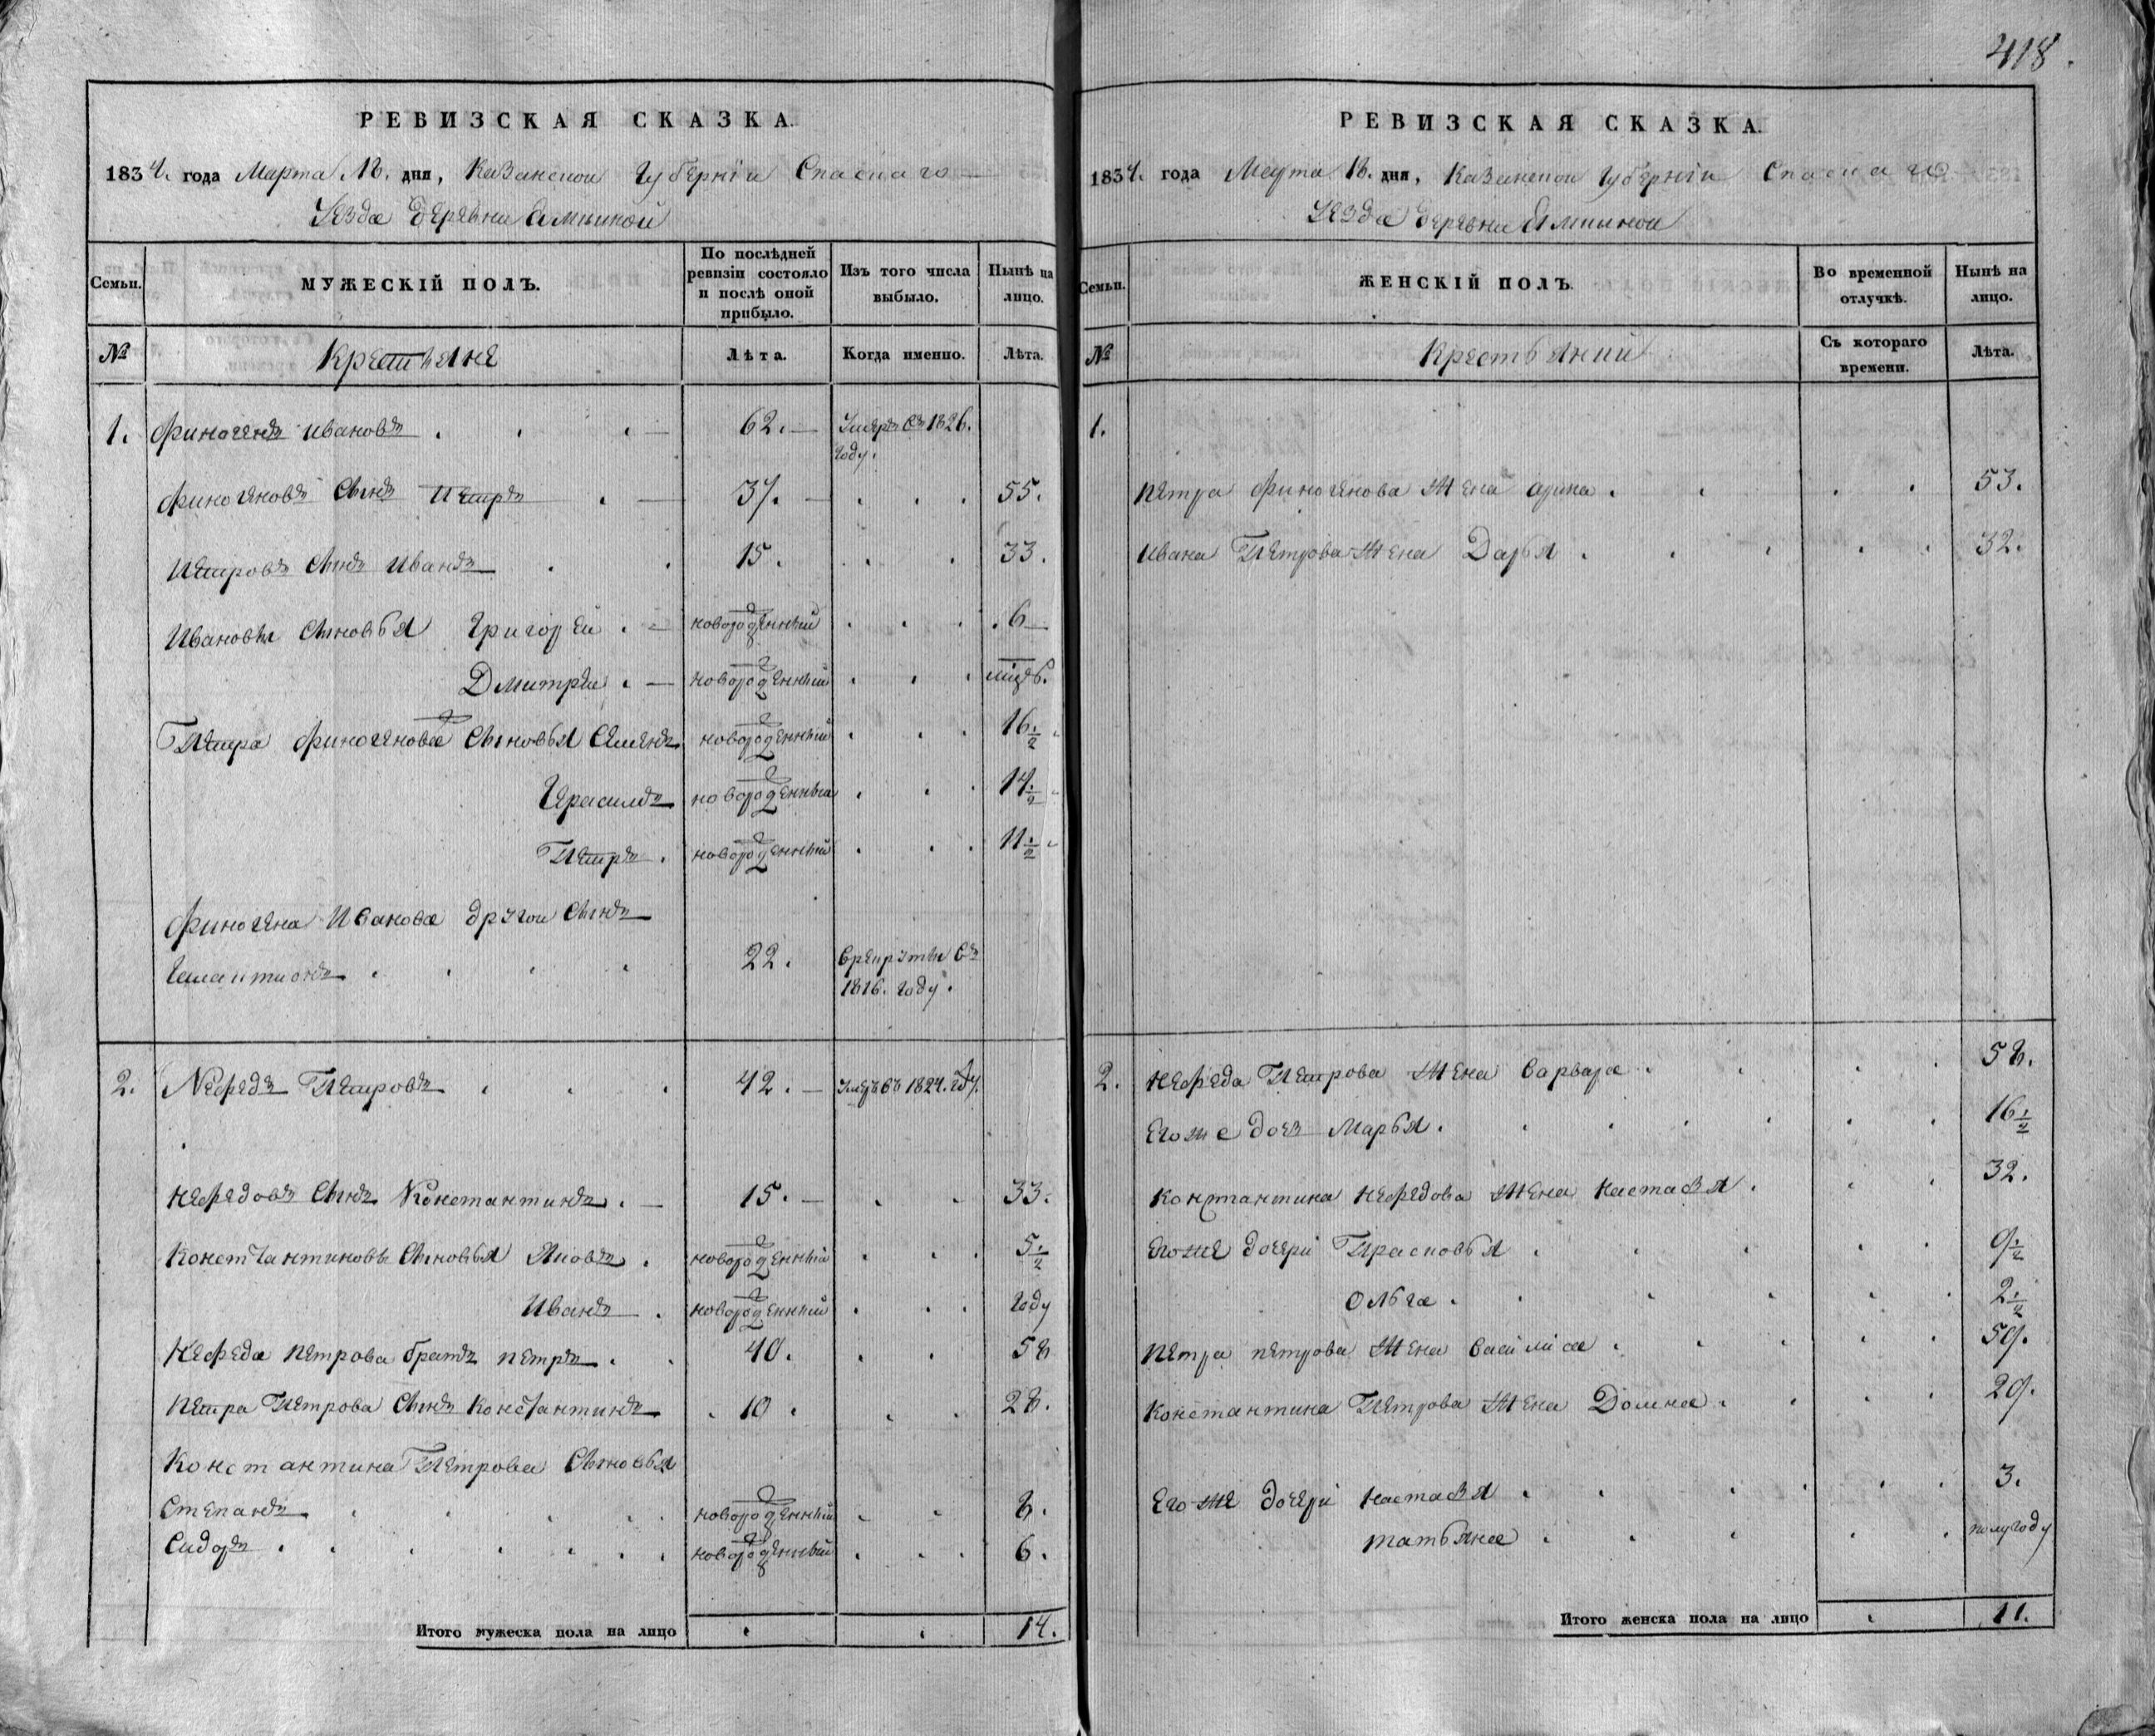 418.
РЕВИЗСКАЯ СКАЗКА.
1834. года Марта 18. дня, Казанской Губернiи Спаскаго
Уезда деревни
Семьи. МУЖЕСКIЙ ПОЛЪ. По послѣдней ревизiи состояло и послѣ оной прибыло. Изъ того числа выбыло. Нынѣ на лицо.
№ Крестьяне Лѣта. Когда именно. Лѣта.
1. Финогенъ Ивановъ 62. Умеръ въ 1826. году.
Финогеновъ Сынъ Петръ 37. 55.
Петровъ Сынъ Иванъ 15. 33.
Ивановы Сыновья Григорей новорожденный 6
Дмитрей новорожденный
Петра Финогенова Сыновья Семенъ новорожденный 16 1/2
Герасимъ новорожденный 14 1/2
Петръ новорожденный 11 1/2
Финогена Иванова другой Сынъ
22. в рекруты въ
1816. году.
2. Нефедъ Петровъ 42. Умеръ въ 1824. году.
Нефедовъ Сынъ Константинъ 15. 33.
Константиновы Сыновья Яковъ новорожденный 5 1/2
Иванъ новорожденный году
Нефеда Петрова братъ Петръ 40. 58
Петра Петрова Сынъ Константинъ 10. 28.
Константина Петрова Сыновья
Степанъ новорожденный 8.
Сидоръ новорожденный 6.
Итого мужеска пола на лицо 14.
РЕВИЗСКАЯ СКАЗКА.
1834. года Марта 18. дня, Казанской Губернiи Спаскаго
Уезда деревни
Семьи. ЖЕНСКIЙ ПОЛЪ. Во временной отлучкѣ. Нынѣ на лицо.
№ Крестьянки Съ котораго времени. Лѣта.
1.
Петра Финогенова Жена Арина 53.
Ивана Петрова Жена Дарья 32.
2. Нефеда Петрова Жена Варвара 58.
Егоже дочь Марья 16 1/2
Константина Нефедова Жена Настасья 32.
Егоже дочери Прасковья 9 1/2
Ольга 2 1/2
Петра Петрова Жена 59.
Константина Петрова Жена Домна 29.
Егоже дочери Настасья 3.
Татьяна полугоду
Итого женска пола на лицо 11.